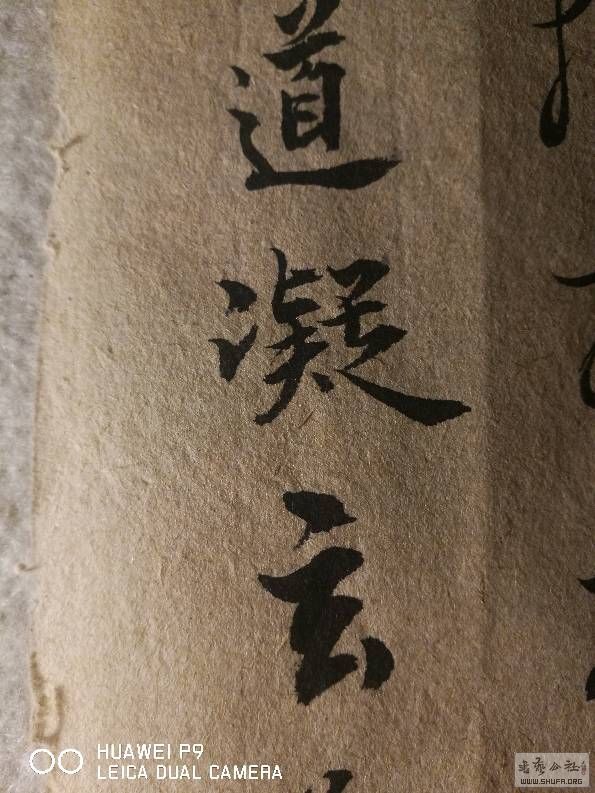 道凝玄
HUAWEI P9
LEICA DUAL CAMERA
WWW.SHUFA.ORG